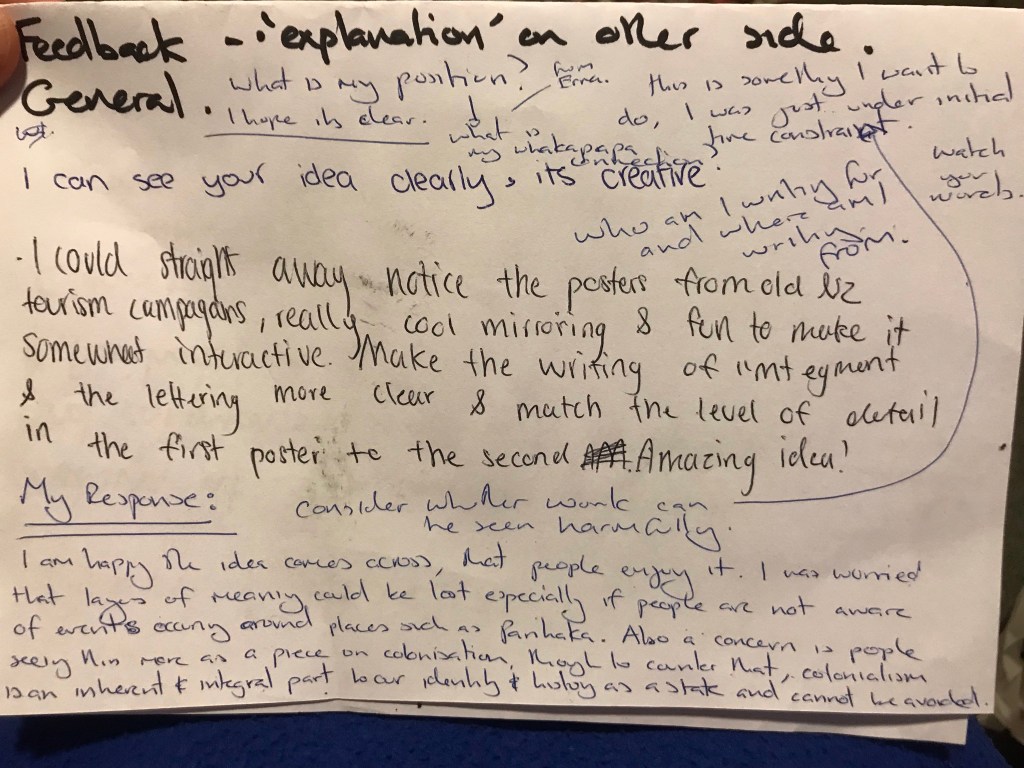 Feedback - 'explanation' on other side.
General.
what is my position?
I hope its clear.
from
what is
my whakapapa
connection?
this is somethy I want to
do, I was just under initial
time constraint.
watch
your
words.
I can see your idea clearly, its creative
who am I writing for
and where am I
writing
from.
- I could straight away notice the posters from old NZ
tourism campagans, really cool mirroring & fun to make it
somewhat interactive. Make the writing of
& the lettering more clear & match the level of detail
in the first poster to the second Amazing idea!
My Response:
consider whether work can
be seen harmfully.
I am happy the idea comes across, that people enjoy it. I was worried
that layers of meaning could be lost especially if people are not aware
of events occuring around places such as Parihaka. Also a concern is people
seeing this more as a piece on colonisation, though to counter that, colonialism
is an inherent & integral part to our identity & history as a state and cannot be avoided.